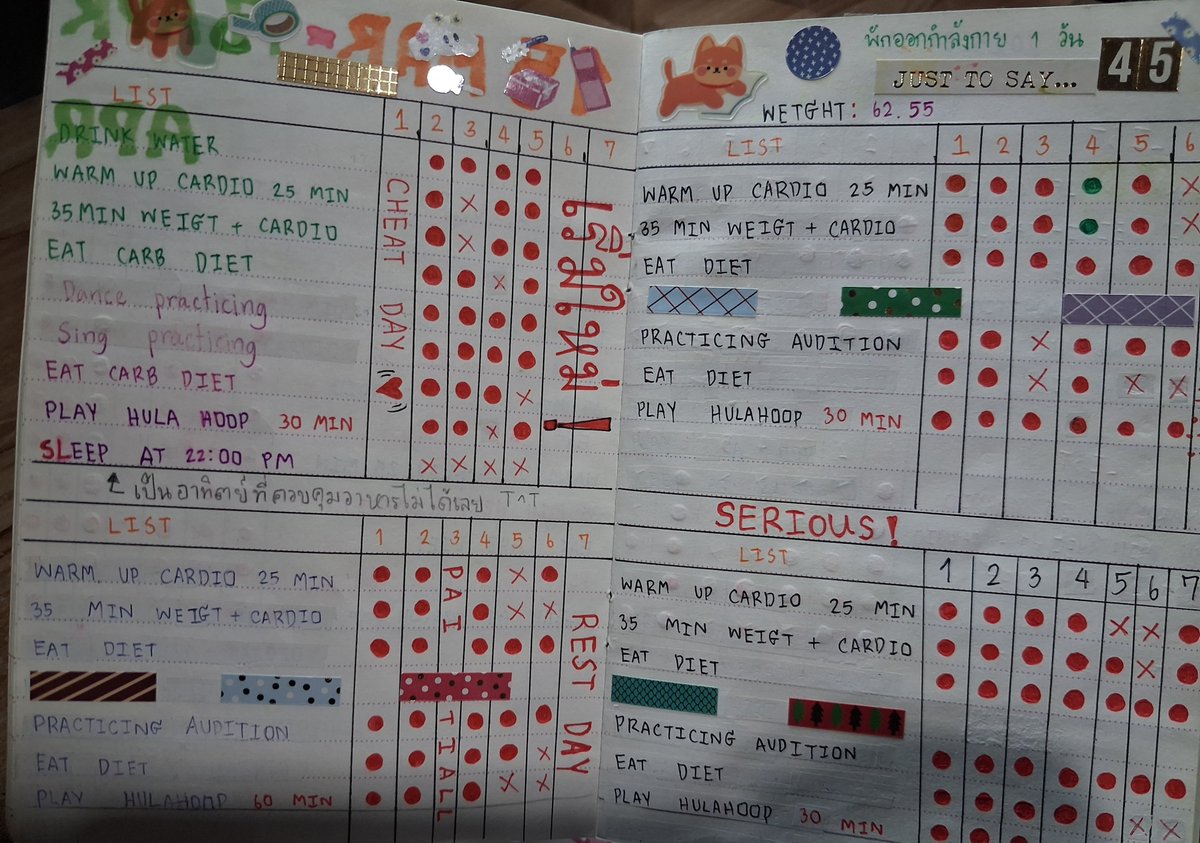 LIST 1 2 3 4 5 6 7
DRINK WATER
WARM UP CARDIO 25 MIN
35 MIN WEIGT + CARDIO
EAT CARB DIET
Dance practicing
Sing practicing
EAT CARB DIET
PLAY HULA HOOP 30 MIN
SLEEP AT 22:00 PM
CHEAT DAY
เริ่มใหม่!
เป็นอาทิตย์ที่ควบคุมอาหารไม่ได้เลย T^T
LIST 1 2 3 4 5 6 7
WARM UP CARDIO 25 MIN
35 MIN WEIGT + CARDIO
EAT DIET
PRACTICING AUDITION
EAT DIET
PLAY HULAHOOP 60 MIN
PAI TIALL
REST DAY
พักออกกำลังกาย 1 วัน
JUST TO SAY... 45
WEIGHT: 62.55
LIST 1 2 3 4 5 6
WARM UP CARDIO 25 MIN
35 MIN WEIGT + CARDIO
EAT DIET
PRACTICING AUDITION
EAT DIET
PLAY HULAHOOP 30 MIN
SERIOUS!
LIST 1 2 3 4 5 6 7
WARM UP CARDIO 25 MIN
35 MIN WEIGT + CARDIO
EAT DIET
PRACTICING AUDITION
EAT DIET
PLAY HULAHOOP 30 MIN